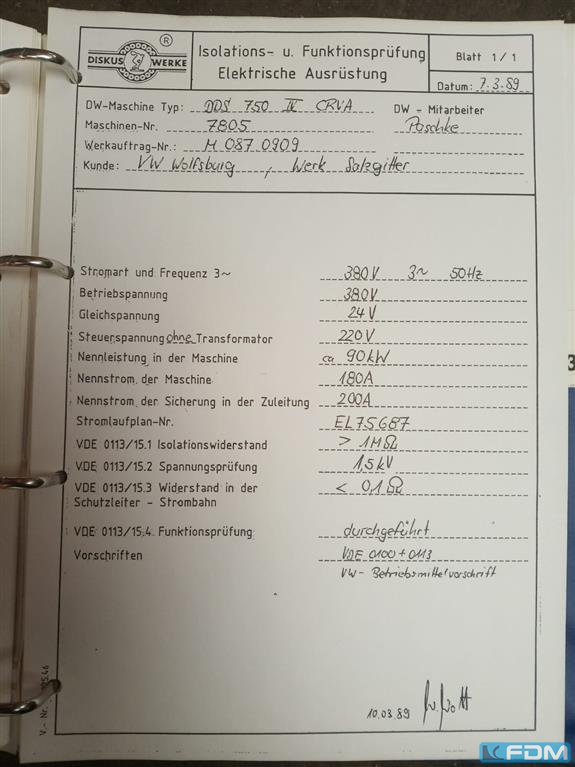 DISKUS WERKE ®
Isolations- u. Funktionsprüfung
Elektrische Ausrüstung
Blatt 1/1
Datum: 7.3.89
DW-Maschine Typ: DDS 750 IV CRVA
DW - Mitarbeiter
Maschinen-Nr. 7805
Paschke
Werkauftrag-Nr.: M 087 0909
Kunde: VW Wolfsburg, Werk Salzgitter
Stromart und Frequenz 3~ 380V 3~ 50Hz
Betriebspannung 380V
Gleichspannung 24 V
Steuerspannung ohne Transformator 220 V
Nennleistung in der Maschine ca 90kW
Nennstrom der Maschine 180A
Nennstrom der Sicherung in der Zuleitung 200A
Stromlaufplan-Nr. EL75687
VDE 0113/15.1 Isolationswiderstand > 1MΩ
VDE 0113/15.2 Spannungsprüfung 1,5kV
VDE 0113/15.3 Widerstand in der
Schutzleiter - Strombahn < 0,1Ω
VDE 0113/15.4. Funktionsprüfung durchgeführt
Vorschriften VDE 0100 + 0113
VW - Betriebsmittelvorschrift
10.03.89
V.- Nr.
FDM